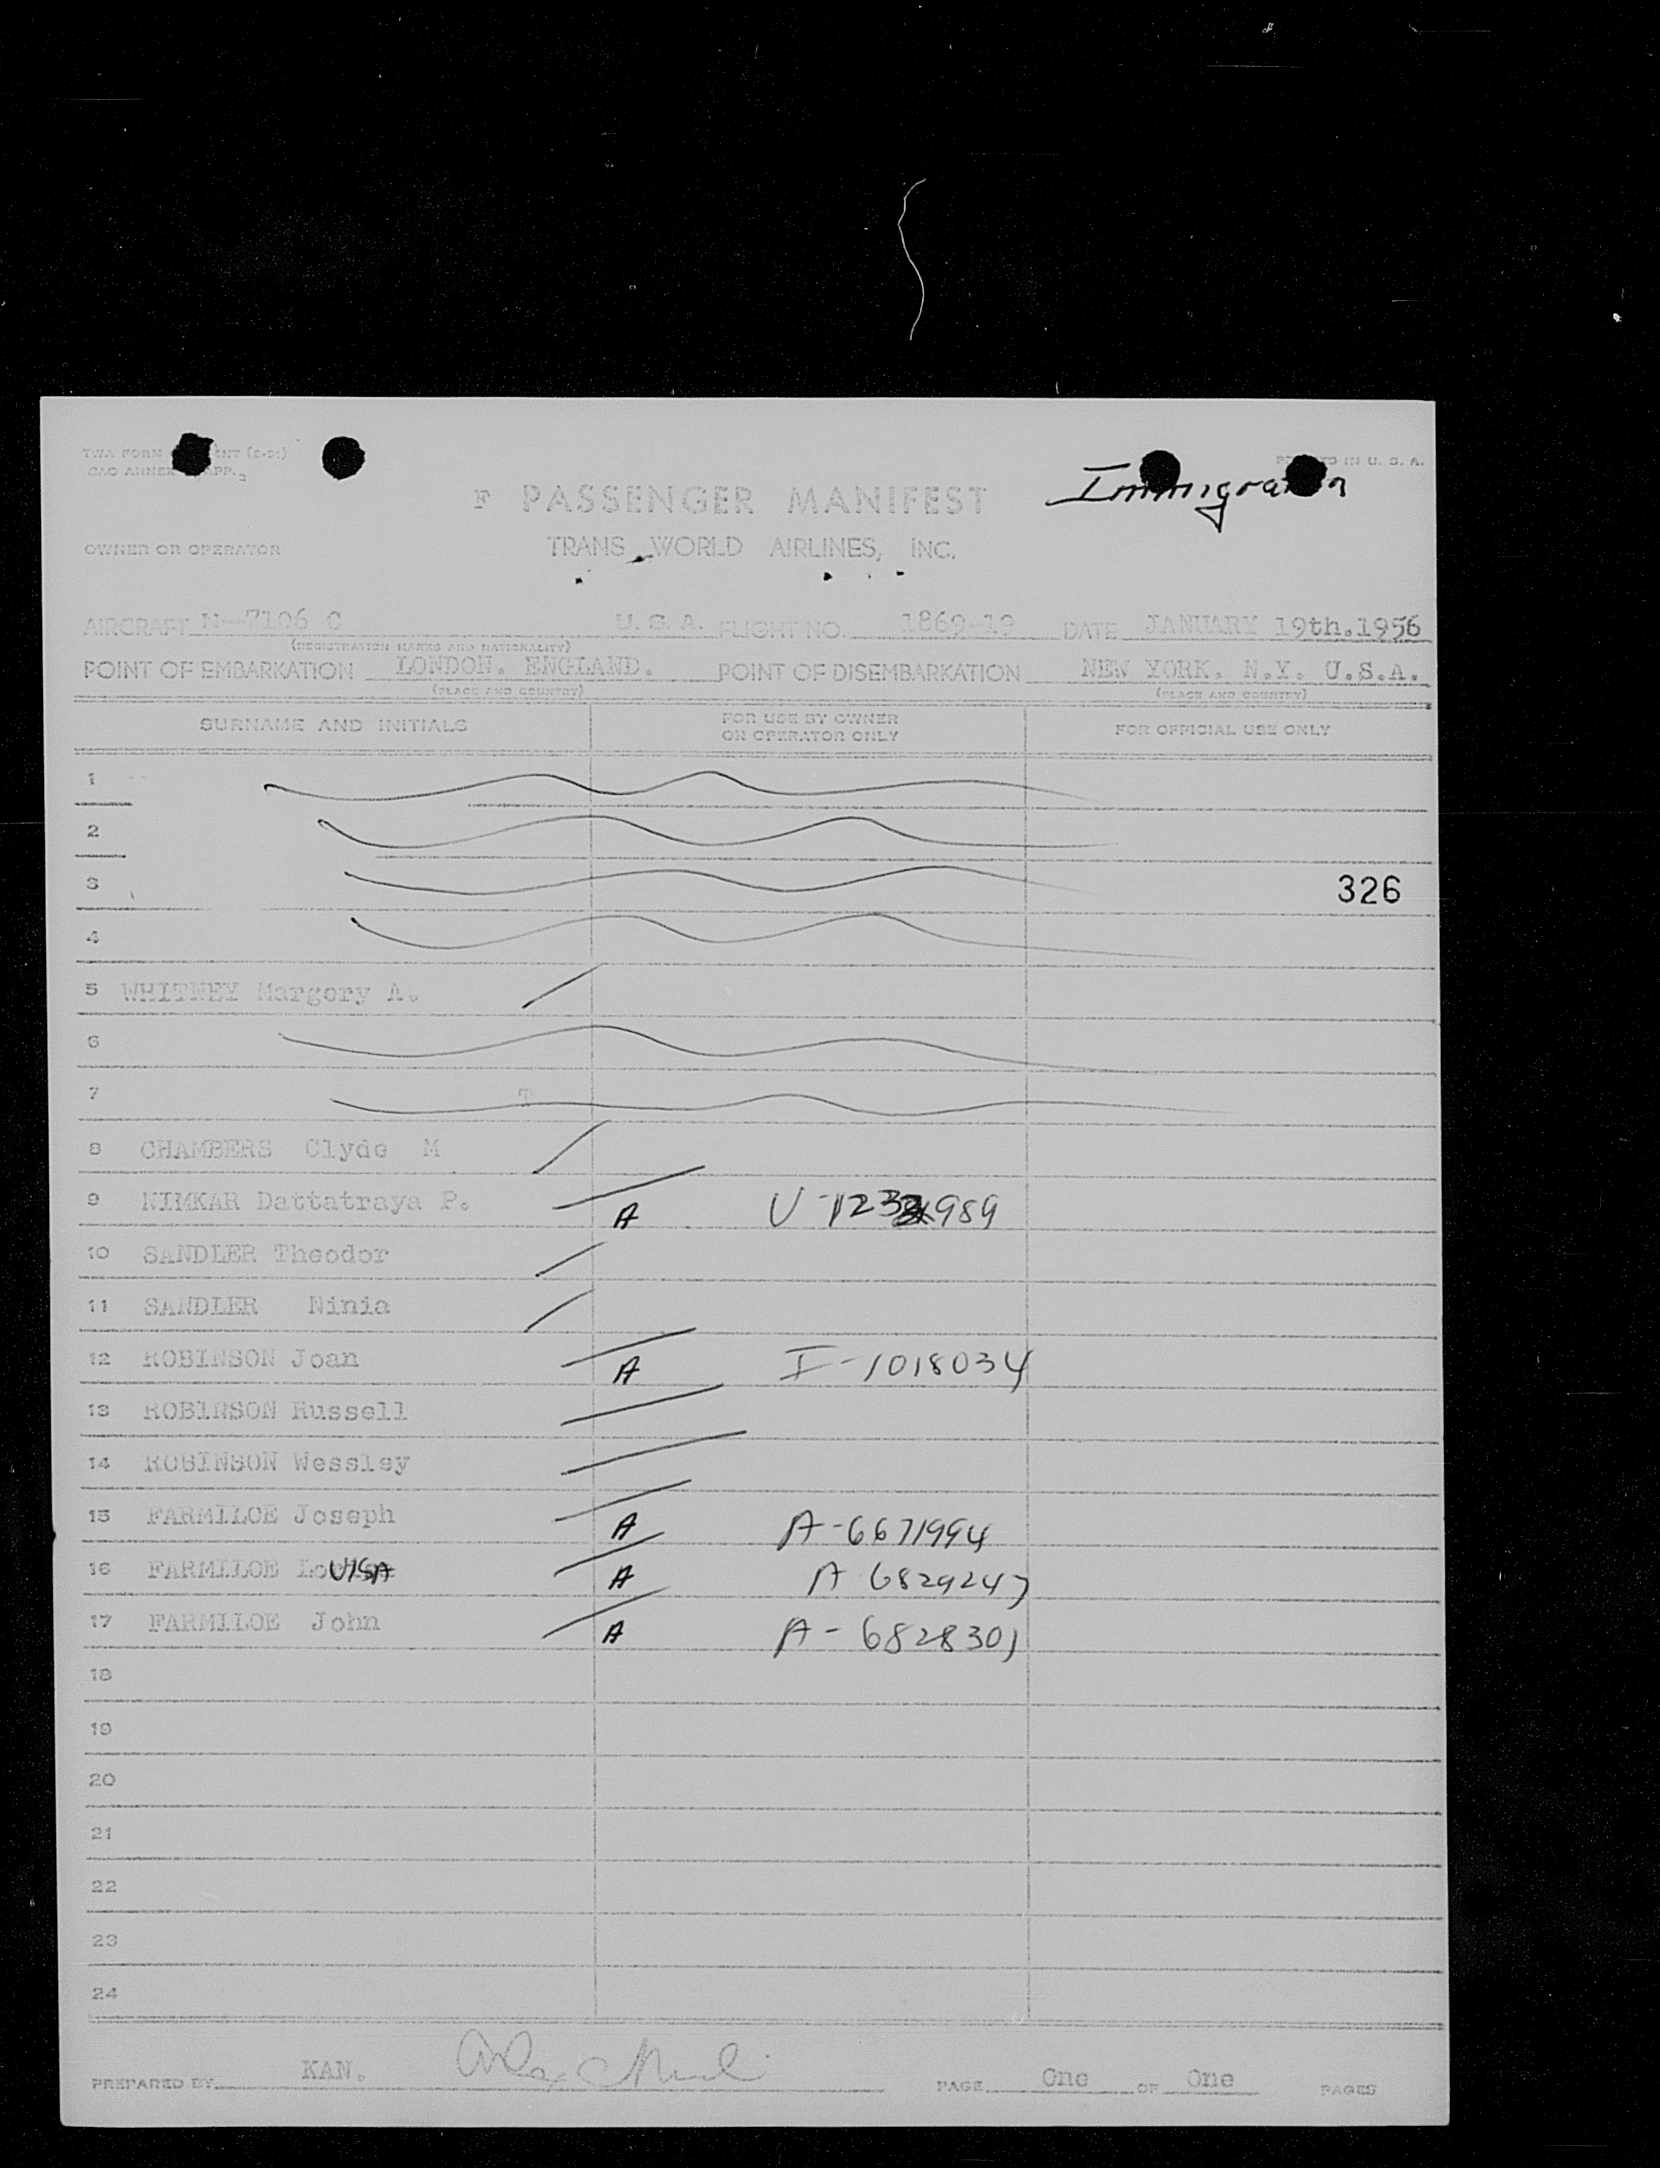 TWA FORM (2-51)
CAO ANNEX APP. 3
PRINTED IN U. S. A.
Immigration
F PASSENGER MANIFEST
OWNER OR OPERATOR TRANS WORLD AIRLINES, INC.
AIRCRAFT N-7106 C U.S.A. FLIGHT NO. 1869-19 DATE JANUARY 19th.1956
(REGISTRATION MARKS AND NATIONALITY)
POINT OF EMBARKATION LONDON. ENGLAND. POINT OF DISEMBARKATION NEW YORK. N.Y. U.S.A.
(PLACE AND COUNTRY) (PLACE AND COUNTRY)
SURNAME AND INITIALS FOR USE BY OWNER OR OPERATOR ONLY FOR OFFICIAL USE ONLY
1
2
3 326
4
5 WHITNEY Margery A.
6
7 T
8 CHAMBERS Clyde M
9 NIMKAR Dattatraya P. A
10 SANDLER Theodor
11 SANDLER Ninia
12 ROBINSON Joan A I-1018034
13 ROBINSON Russell
14 ROBINSON Wessley
15 FARMILOE Joseph A A-6671994
16 FARMILOE A A 6829247
17 FARMILOE John A A-6828301
18
19
20
21
22
23
24
PREPARED BY KAN. PAGE One OF One PAGES